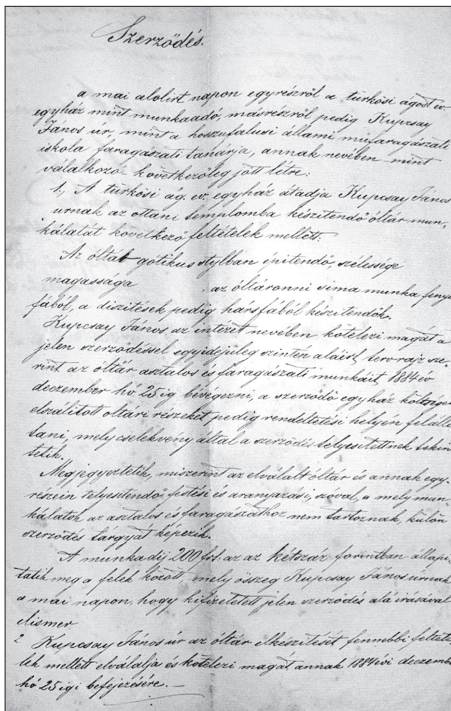 Szerződés.
a mai alolirt napon egyrészről a türkösi ágost. ev.
egyház mint munkaadó, másrészről pedig Kupcsay
János úr, mint a hosszufalusi állami műfaragászati
iskola faragászati tanárja, annak nevében mint
válalkozó következőleg jött létre:
1., A türkösi ág. ev. egyház átadja Kupcsay János
urnak az ottani templomba készitendő oltár mun,
hálatát következő feltételek mellett.
Az oltár gótikus stylban épitendő, szélessége
magassága az oltáronni sima munka fenyő
fából, a diszitések pedig hársfából készitendők.
Kupcsay János az intézet nevében kötelezi magát a
jelen szerződéssel egyidejüleg szintén aláirt, terv rajz sze,
rint az oltár asztalos és faragászati munkáit, 1884 év
deczember hó 25 ig bevégezni, a szerződő egyház költségén
elszálitott oltári részeket pedig rendeltetési helyén felálli
tani, mely cselekvény által a szerződés telyesitettnek tekin
tetik.
Megjegyeztetik, miszerint az elválalt oltár és annak egy,
részein telyesitendő festési és aranyazási, szóval, a mely mun,
hálatok az asztalos és faragászathoz nem tartoznak, külön
szerződés tárgyát képezik.
A munkadij 200 frt. az az kétszáz forintban állapi,
tatik meg a felek között, mely összeg Kupcsay János úrnak
a mai napon, hogy kifizettetett jelen szerződés alá irásával
elismer
2 Kupcsay János úr az oltár elkészitését fennebbi feltéte
lek mellett elválalja és kötelezi magát annak 1884 évi deczember
hó 25 igi befejezésére. —